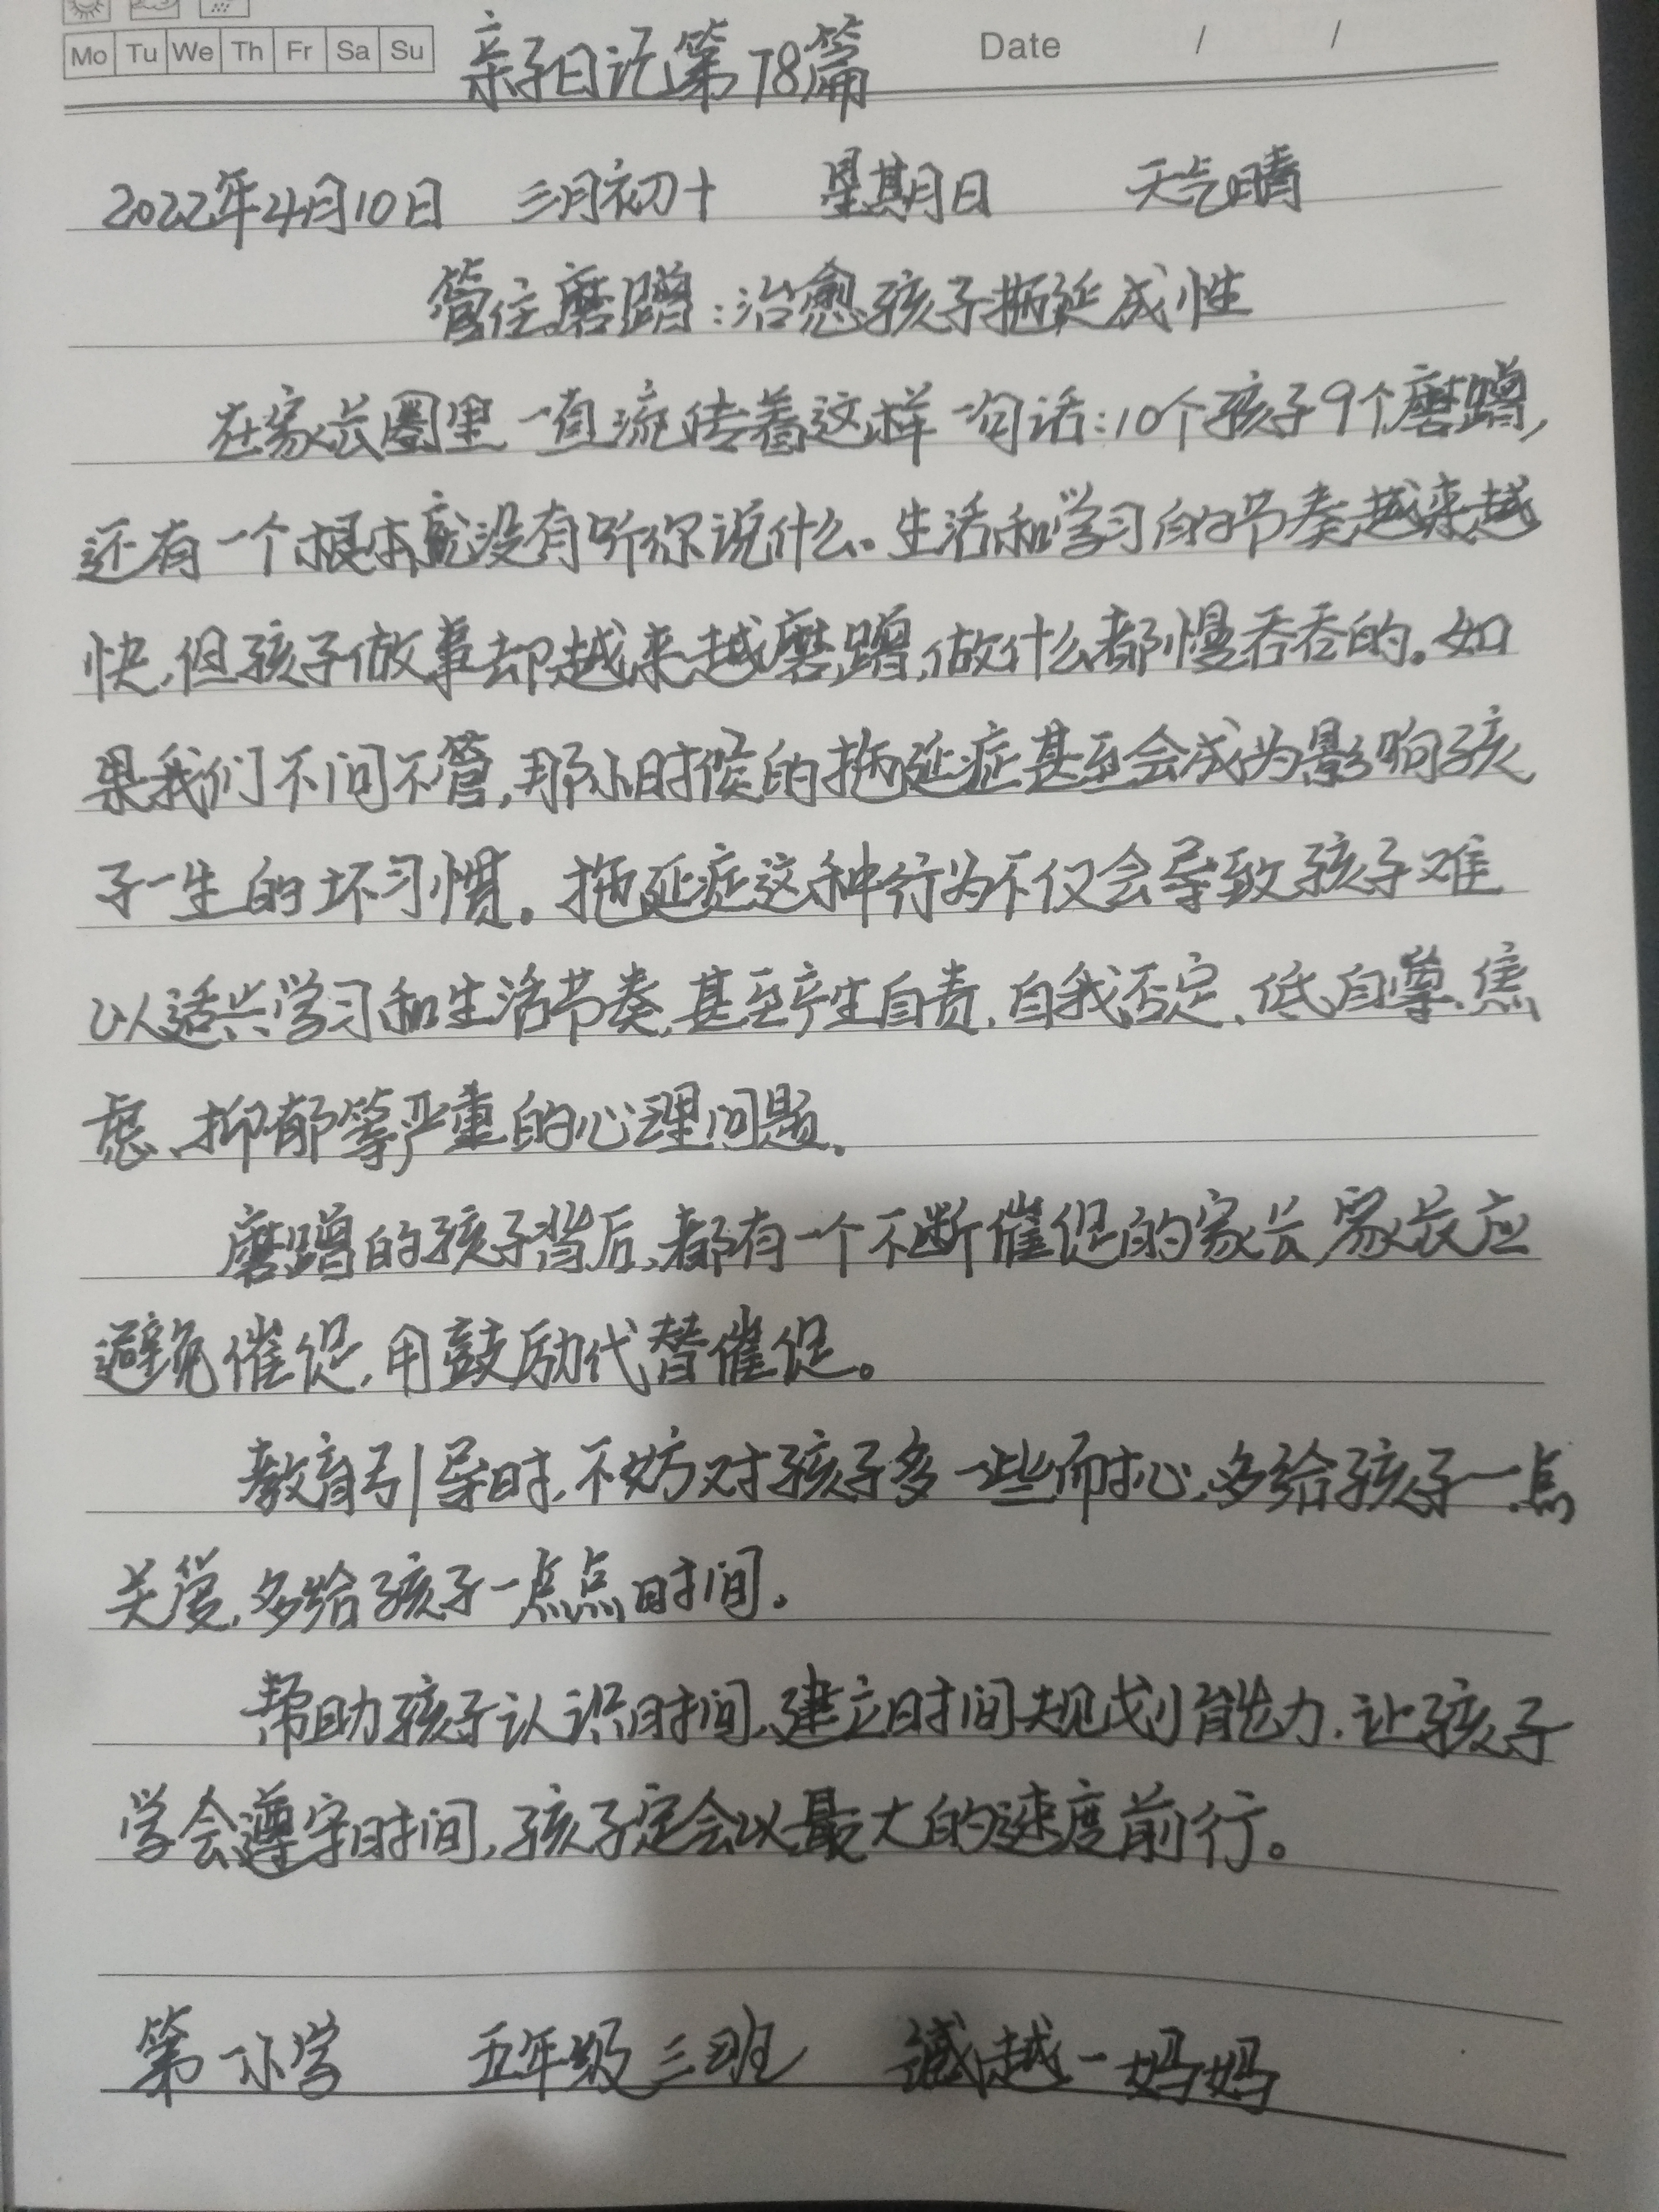 Mo Tu We Th Fr Sa Su
亲子日记第78篇
Date / /
2022年4月10日 三月初十 星期日 天气晴
管住磨蹭：治愈孩子拖延成性
在家长圈里一直流传着这样一句话：10个孩子9个磨蹭，
还有一个根本就没有听你说什么。生活和学习的节奏越来越
快，但孩子做事却越来越磨蹭，做什么都慢吞吞的。如
果我们不问不管，那小时候的拖延症甚至会成为影响孩
子一生的坏习惯。拖延症这种行为不仅会导致孩子难
以适兴学习和生活节奏，甚至产生自责、自我否定、低自尊、焦
虑、抑郁等严重的心理问题。
磨蹭的孩子背后，都有一个不断催促的家长，家长应
避免催促，用鼓励代替催促。
教育引导时，不妨对孩子多一些耐心，多给孩子一点
关爱，多给孩子一点点时间。
帮助孩子认识时间，建立时间规划能力，让孩子
学会遵守时间，孩子定会以最大的速度前行。
第一小学 五年级三班 越一妈妈